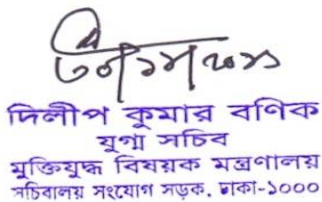 দিলীপ কুমার বণিক
যুগ্ম সচিব
মুক্তিযুদ্ধ বিষয়ক মন্ত্রণালয়
সচিবালয় সংযোগ সড়ক, ঢাকা-১০০০